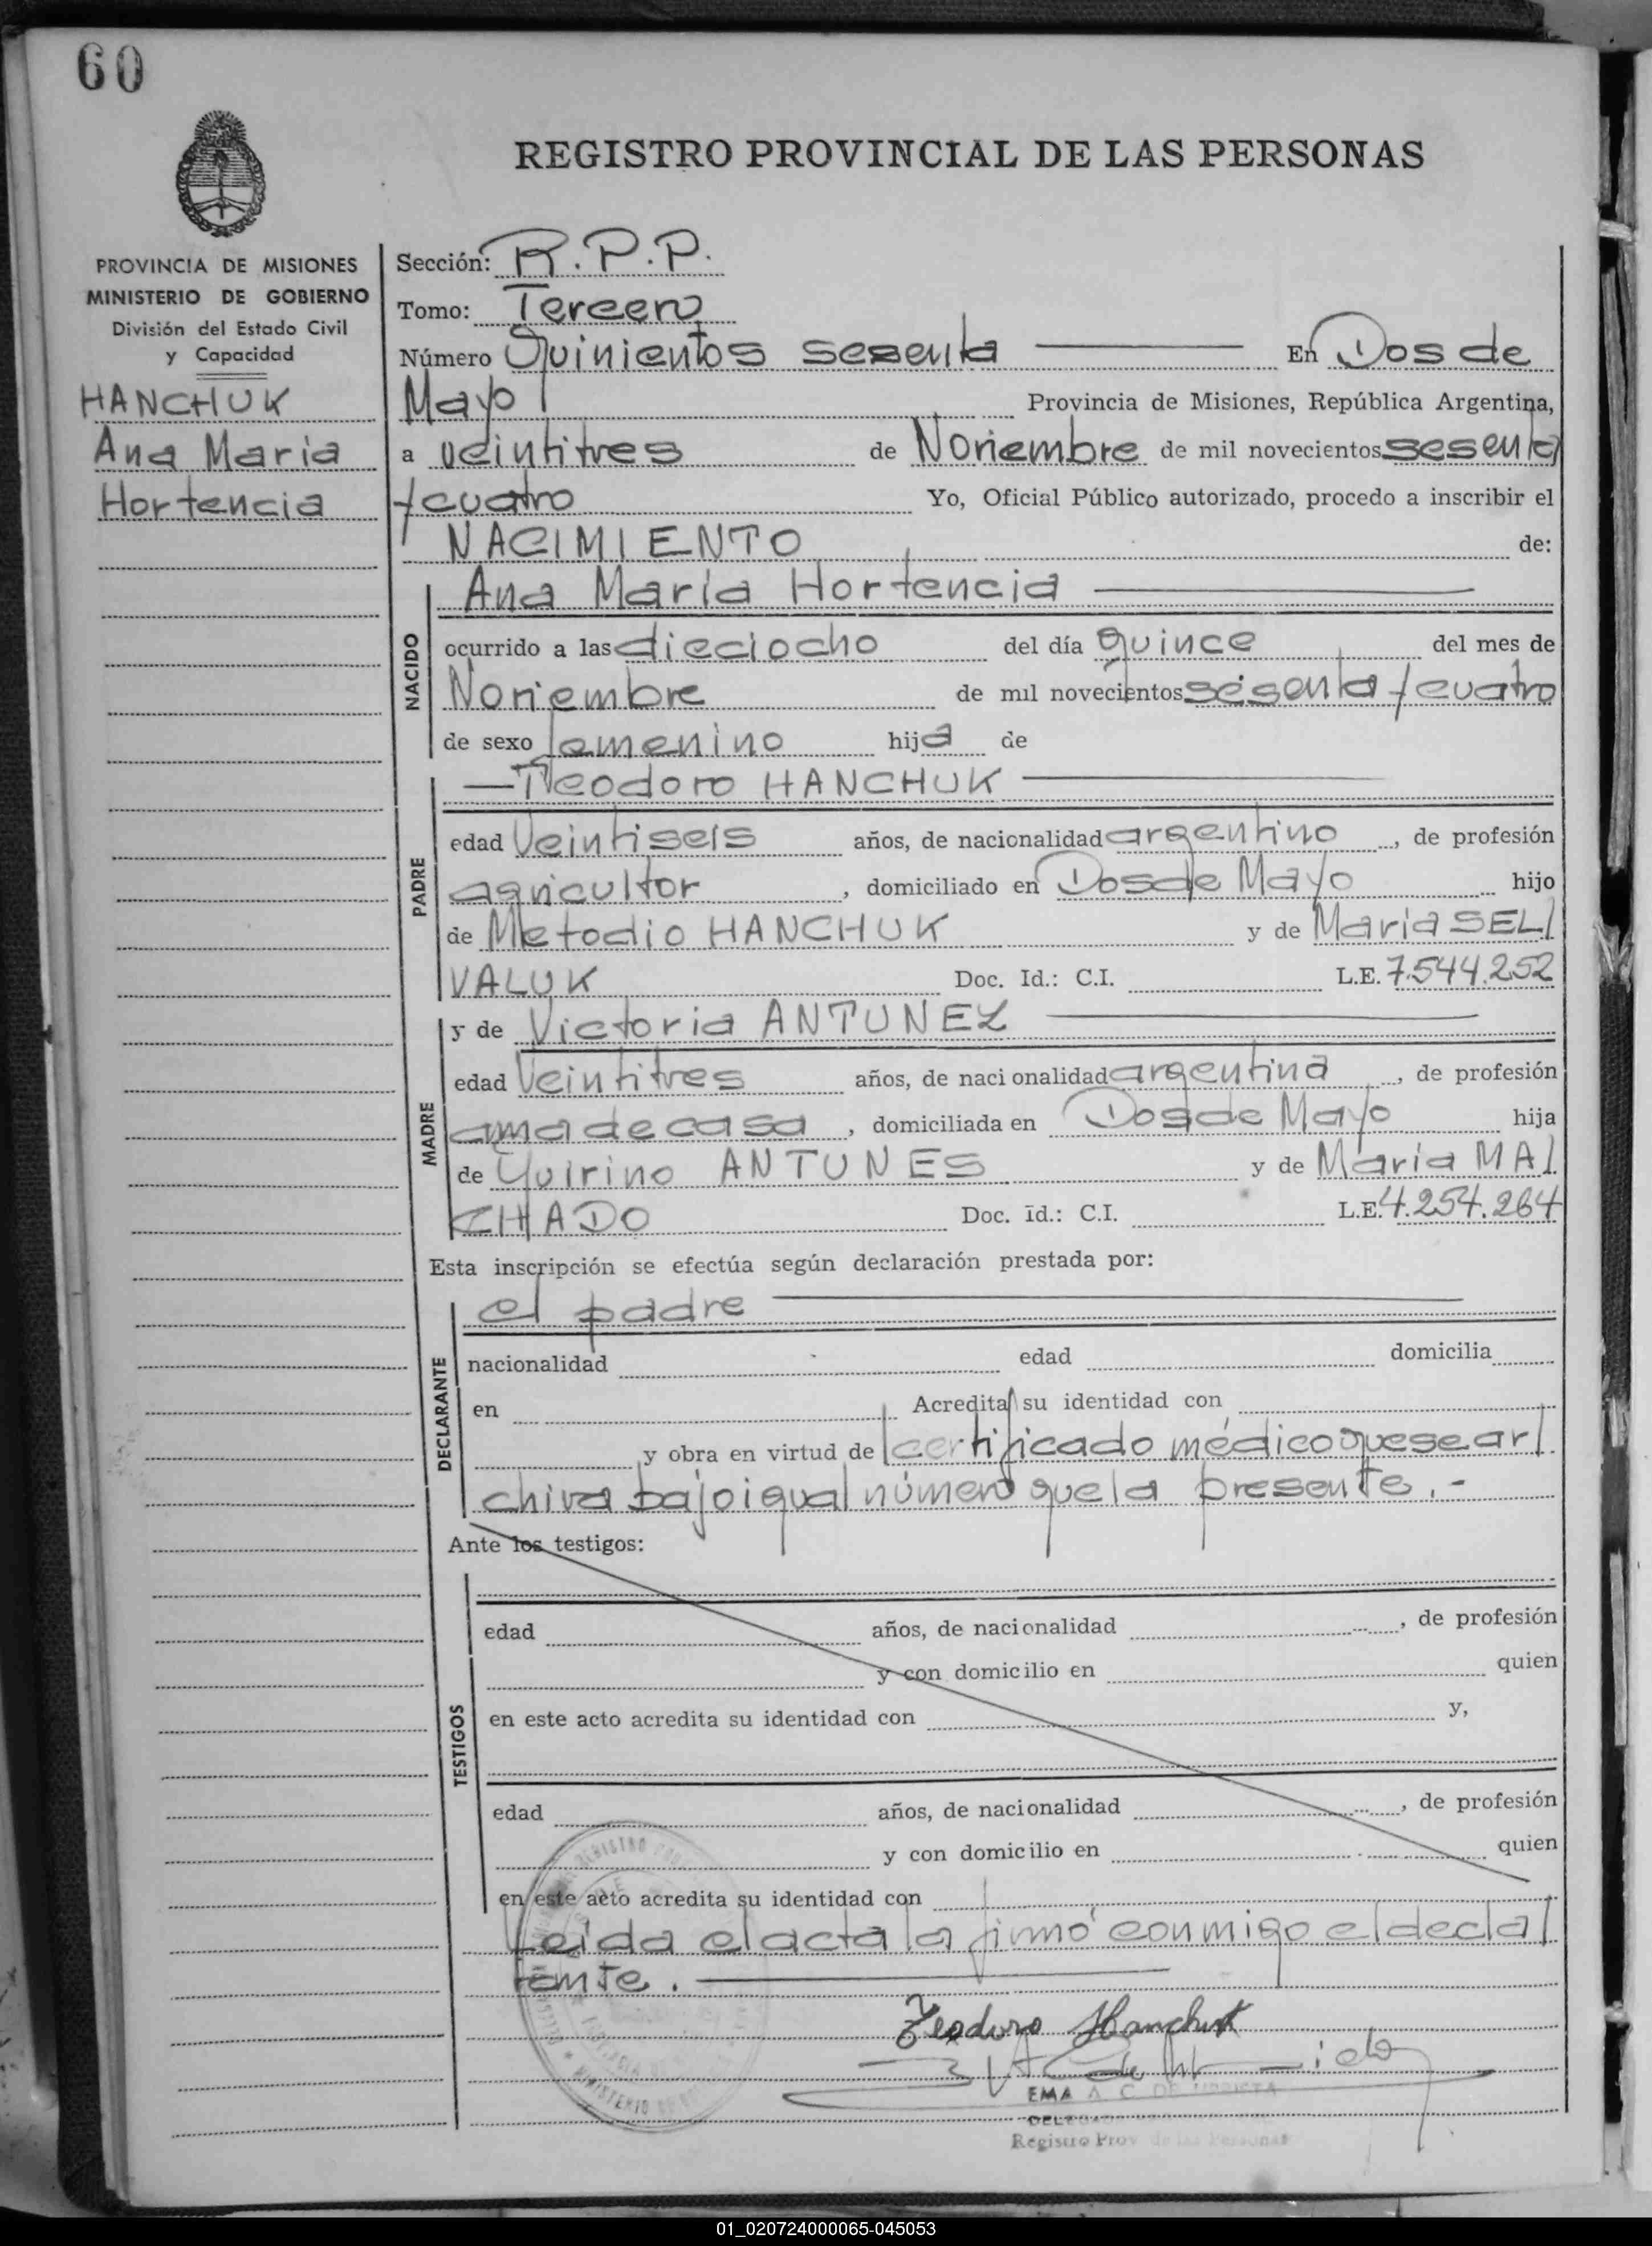 60
REGISTRO PROVINCIAL DE LAS PERSONAS
PROVINCIA DE MISIONES
MINISTERIO DE GOBIERNO
División del Estado Civil
y Capacidad
HANCHUK
Ana Maria
Hortencia
Sección: R.P.P.
Tomo: Tercero
Número Quinientos sesenta En Dos de
Mayo Provincia de Misiones, República Argentina,
a veintitres de Noviembre de mil novecientos sesenta
y cuatro Yo, Oficial Público autorizado, procedo a inscribir el
NACIMIENTO de:
NACIDO
Ana María Hortencia
ocurrido a las dieciocho del día quince del mes de
Noviembre de mil novecientos sesenta y cuatro
de sexo femenino hija de
PADRE
—Teodoro HANCHUK
edad veintiseis años, de nacionalidad argentino, de profesión
agricultor, domiciliado en Dos de Mayo hijo
de Metodio HANCHUK y de Maria SEL/
VALUK Doc. Id.: C.I. L.E. 7.544.252
MADRE
y de Victoria ANTUNEZ
edad veintitres años, de nacionalidad argentina, de profesión
ama de casa, domiciliada en Dos de Mayo hija
de Quirino ANTUNES y de María MA/
CHADO Doc. Id.: C.I. L.E. 4.254.264
Esta inscripción se efectúa según declaración prestada por:
DECLARANTE
el padre
nacionalidad edad domicilia
en Acredita su identidad con
y obra en virtud de certificado médico que se ar/
chiva bajo igual número que la presente.-
Ante los testigos:
TESTIGOS
edad años, de nacionalidad, de profesión
y con domicilio en quien
en este acto acredita su identidad con y,
edad años, de nacionalidad, de profesión
y con domicilio en quien
en este acto acredita su identidad con
Leida el acta la firmó conmigo el decla/
rante.
Teodoro Hanchuk
EMA A. C. DE
Registro Prov. de las Personas
01_020724000065-045053